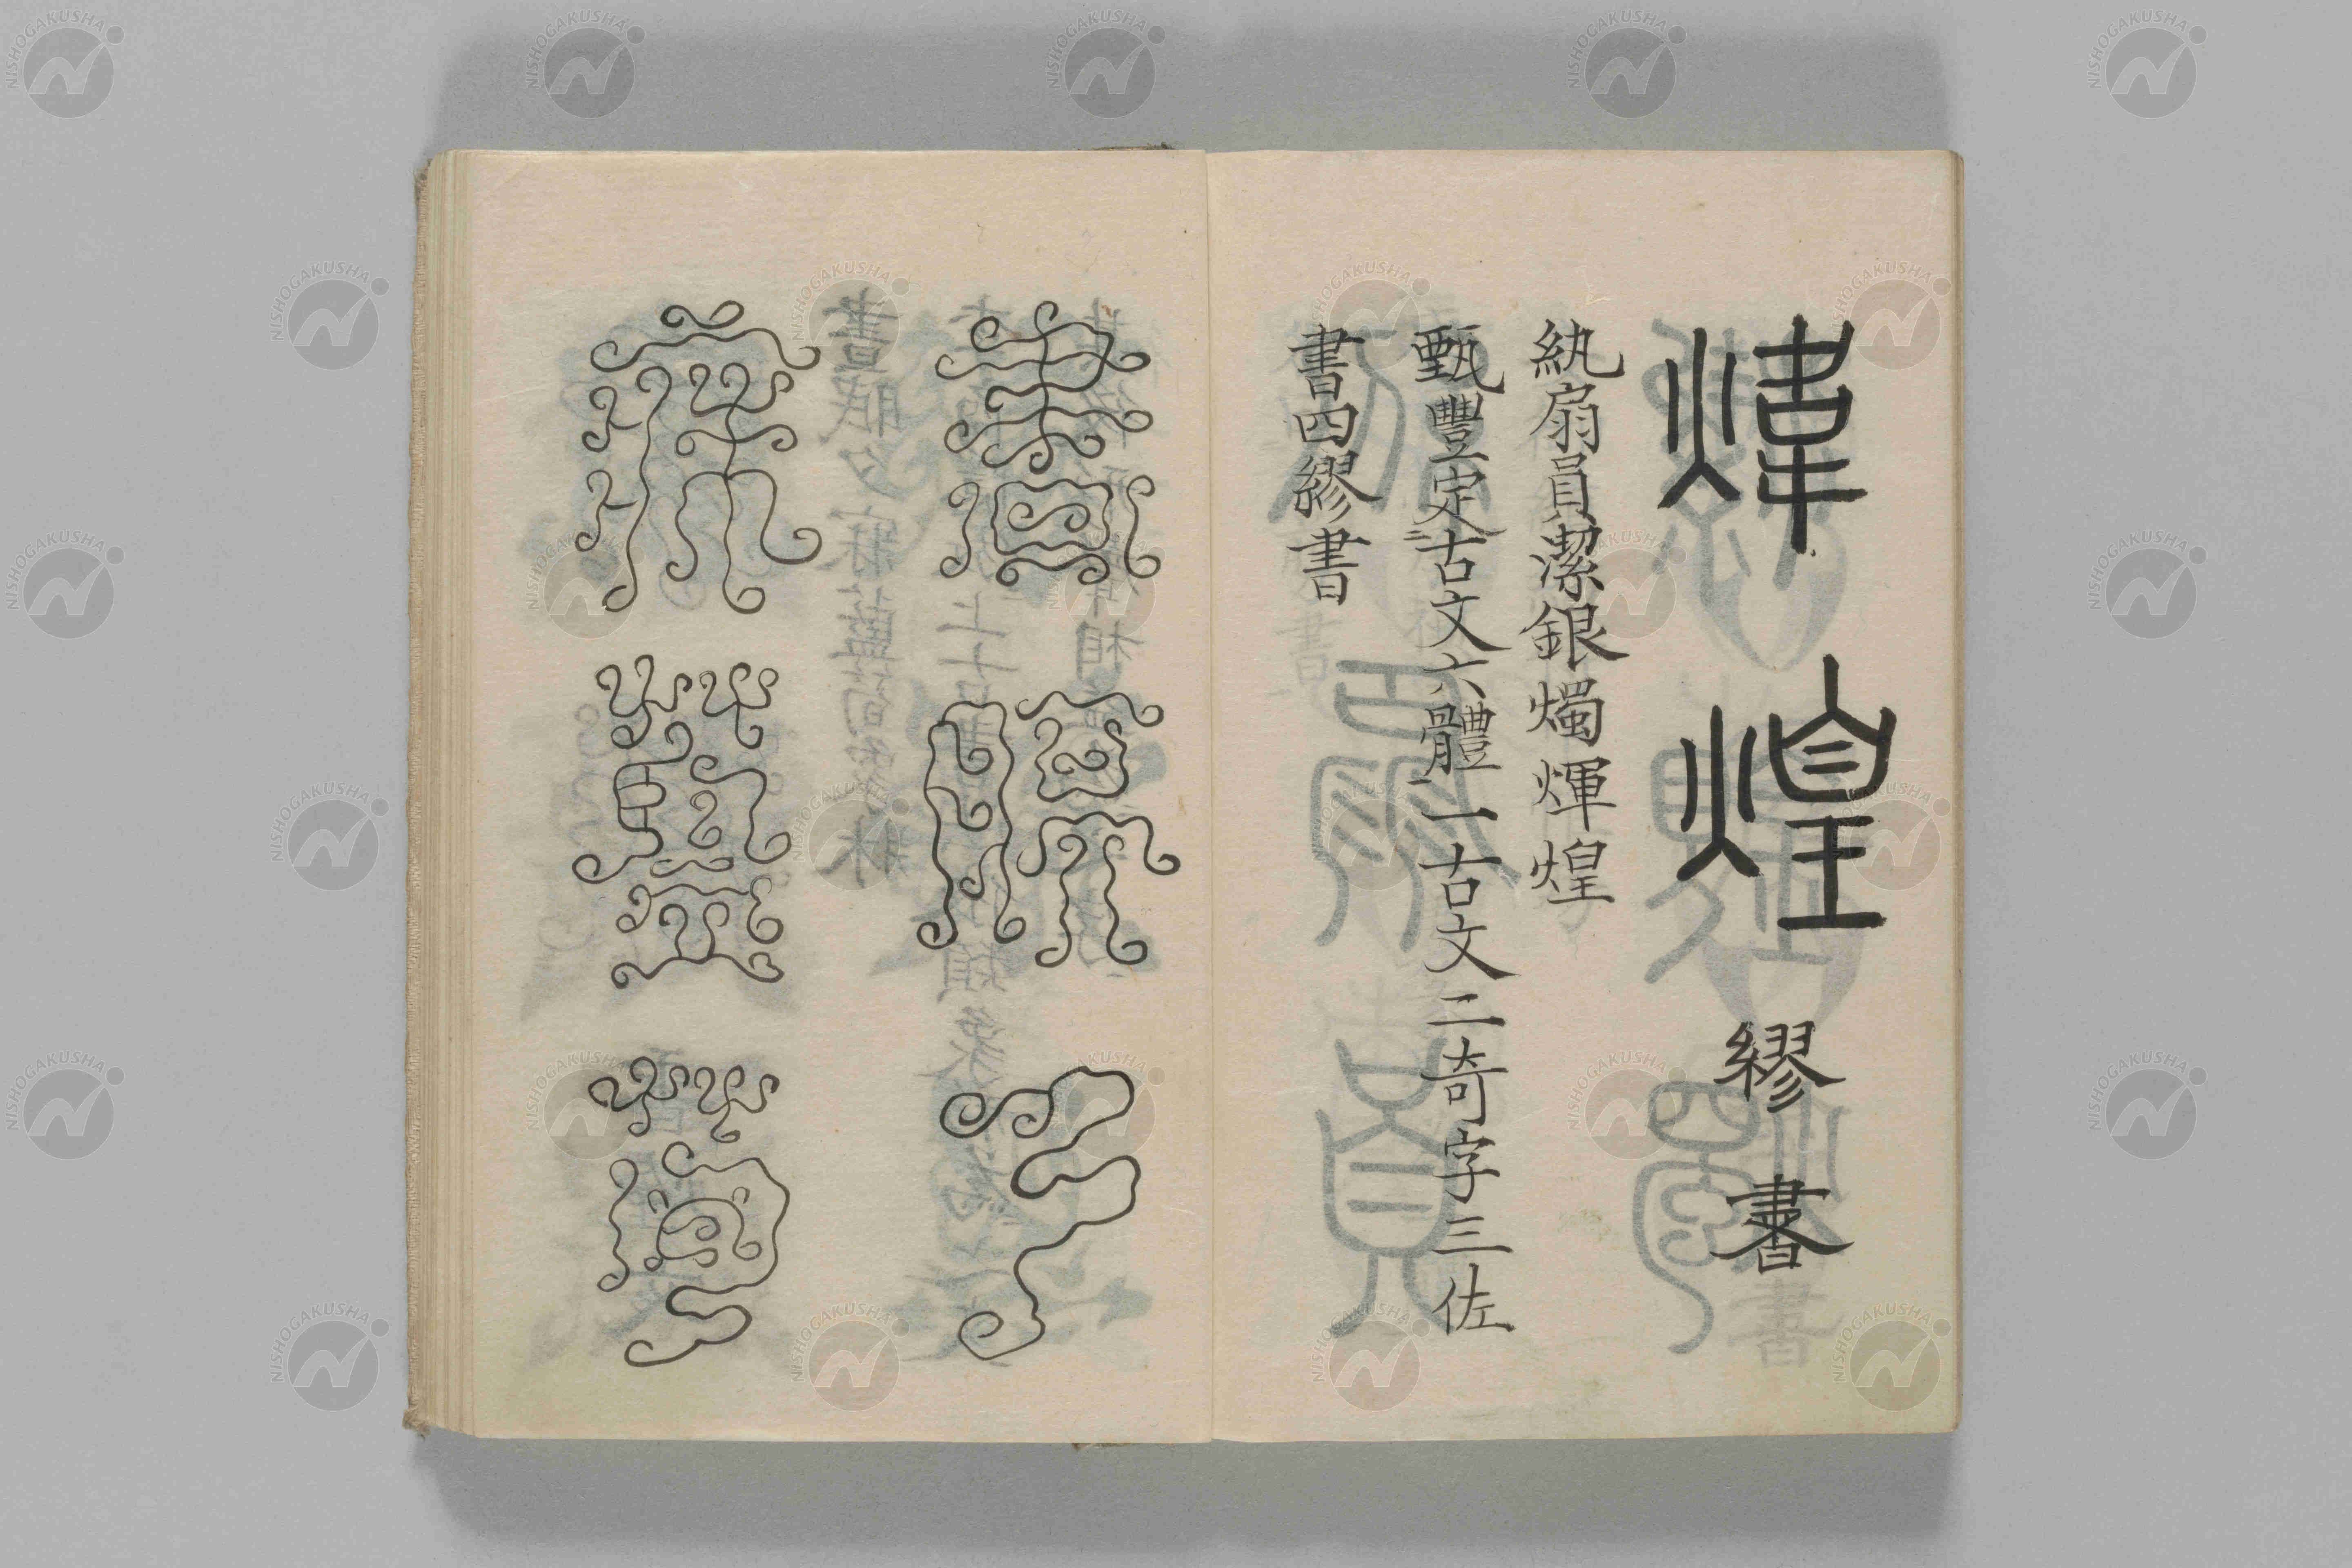 煒煌 繆書
紈扇員潔銀燭煇煌
甄豐定古文六體一古文二奇字三佐
書四繆書
晝眠夕
寐藍筍
NISHOGAKUSHA